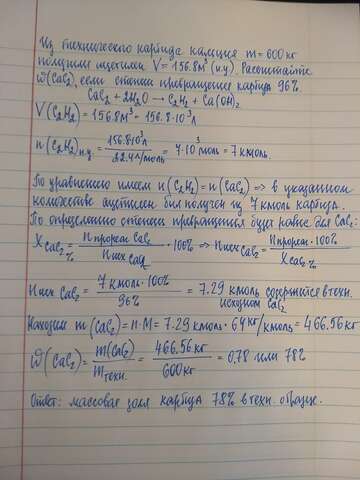 Из технического карбида кальция m = 600 кг
получили ацетилен V = 156.8 м³ (н.у). Рассчитайте
ω(CaC₂), если степень превращения карбида 96%.
CaC₂ + 2H₂O → C₂H₂ + Ca(OH)₂
V(C₂H₂) = 156.8 м³ - 156.8·10³ л
n(C₂H₂)н.у. = 156.8·10³ л / 22.4 л/моль = 7·10³ моль = 7 кмоль.
По уравнению имеем n(C₂H₂) = n(CaC₂) => в указанном
количестве ацетилен был получен из 7 кмоль карбида.
По определению степень превращения будет равна для CaC₂:
X CaC₂ % = n прореаг CaC₂ / n исх CaC₂ · 100% => n исх CaC₂ = n прореаг · 100% / X CaC₂ %
n исх CaC₂ = 7 кмоль · 100% / 96% = 7.29 кмоль содержится в техн.
исходном CaC₂
Находим m(CaC₂) = n·M = 7.29 кмоль · 64 кг/кмоль = 466.56 кг
ω(CaC₂) = m(CaC₂) / m техн. = 466.56 кг / 600 кг = 0,78 или 78%
Ответ: массовая доля карбида 78% в техн. образце.